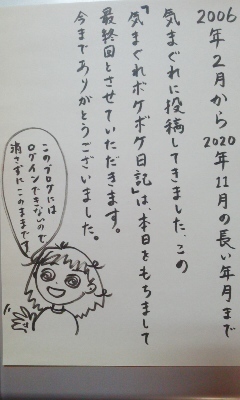 2006年2月から2020年11月の長い年月まで
気まぐれに投稿してきました、この
「気まぐれボケボケ日記」は、本日をもちまして
最終回とさせていただきます。
今までありがとうございました。
このブログには
ログインできないので
消さずにこのままです